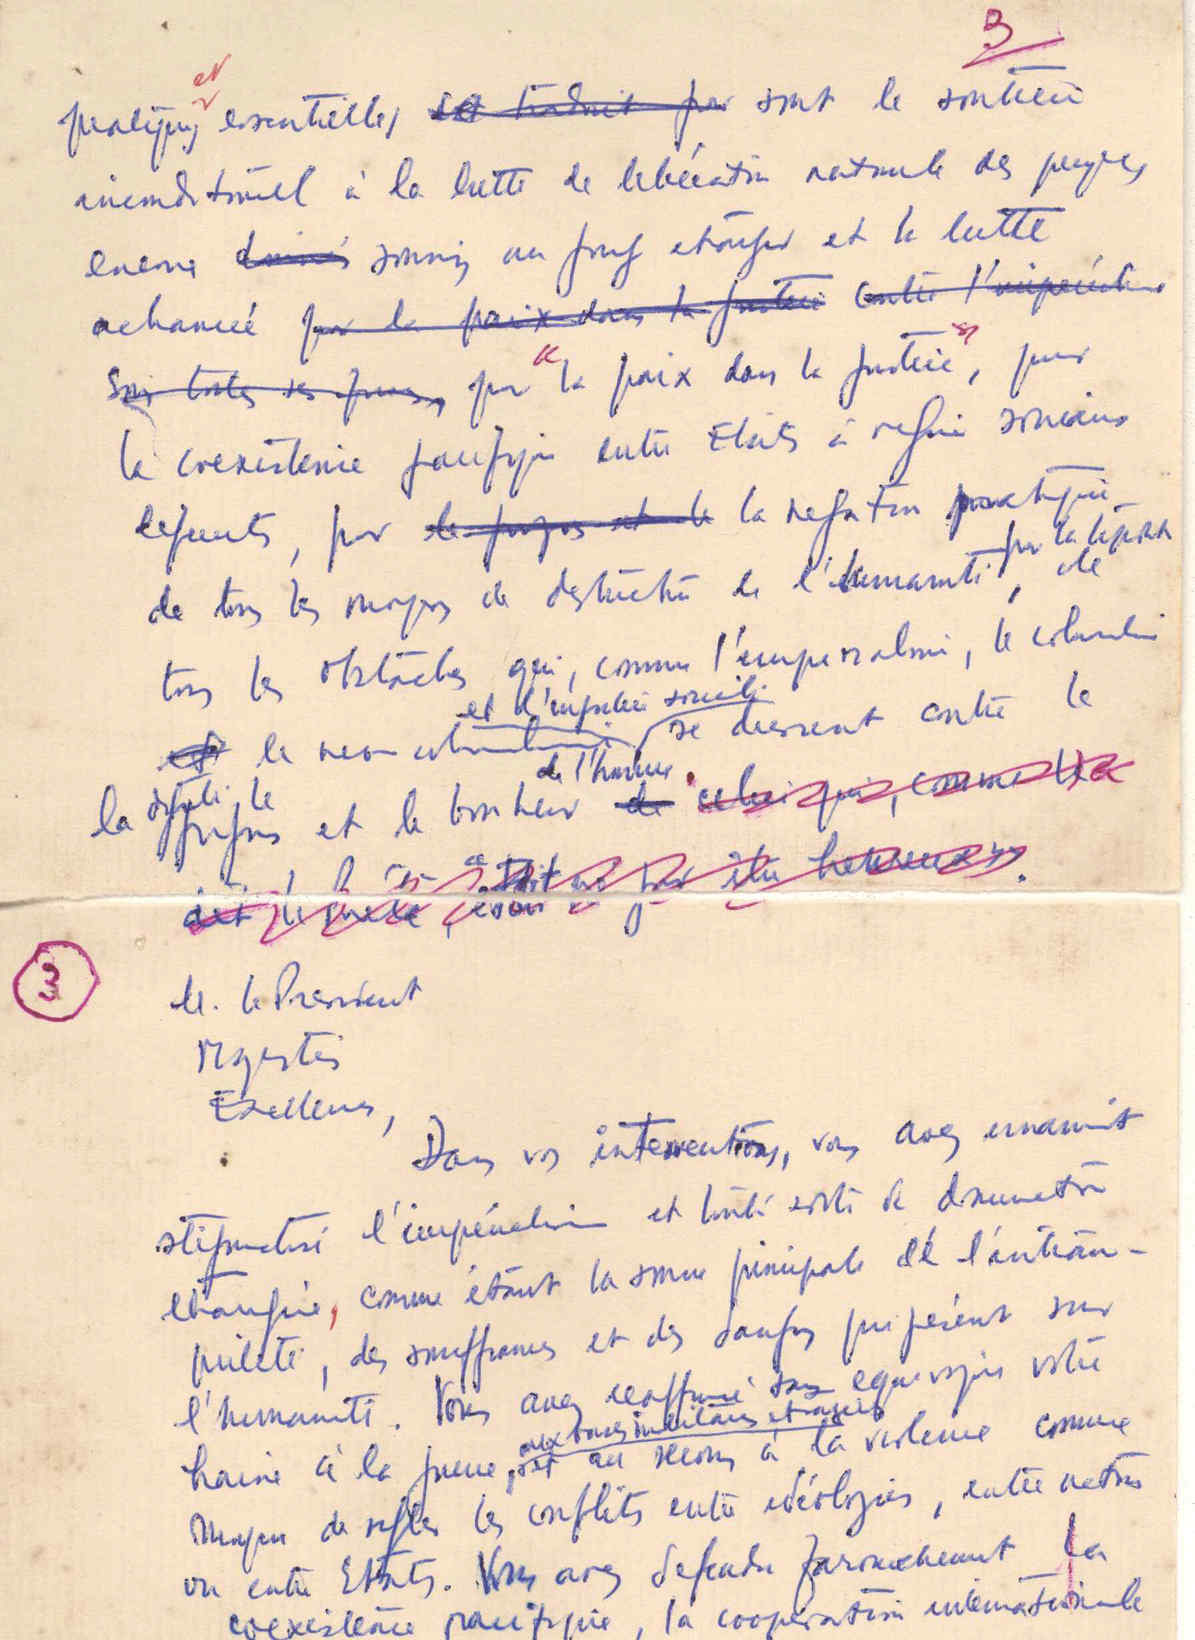 3
et
pratiques essentielles est traduit par sont le soutien
inconditionnel à la lutte de libération nationale des peuples
encore dominés soumis au joug étranger et la lutte
acharnée pour la paix dans la justice contre l'impérialisme
sous toutes ses formes, pour "la paix dans la justice", pour
la coexistence pacifique entre Etats à régime sociaux
différents, pour le progrès et le la négation pratique
de tous les moyens de destruction de l'humanité, de
tous les obstacles qui, comme l'impérialisme, le colonialisme
et l'injustice sociale
et le néo-colonialisme se dressent contre le
de l'homme.
la dignité, le
progrès et le bonheur de celui qui, comme
3
M. le Président
Majestés
Excellences,
Dans vos interventions, vous avez unanimement
stigmatisé l'impérialisme et toute sorte de domination
étrangère, comme étant la source principale de l'intran-
quilité, des souffrances et des dangers qui pèsent sur
l'humanité. Vous avez réaffirmé sans équivoque votre
aux bases militaires étrangères
haine à la guerre, et au recours à la violence comme
moyen de régler les conflits entre idéologies, entre nations
ou entre Etats. Vous avez défendu farouchement la
coexistence pacifique, la coopération internationale